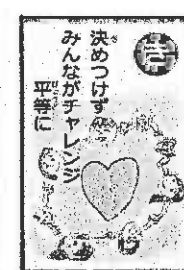 き
決めつけず
みんながチャレンジ
平等に